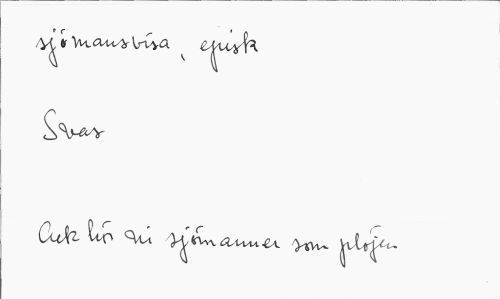 sjömansvisa, episk
Svas
Ack hör ni sjömänner som plöjen